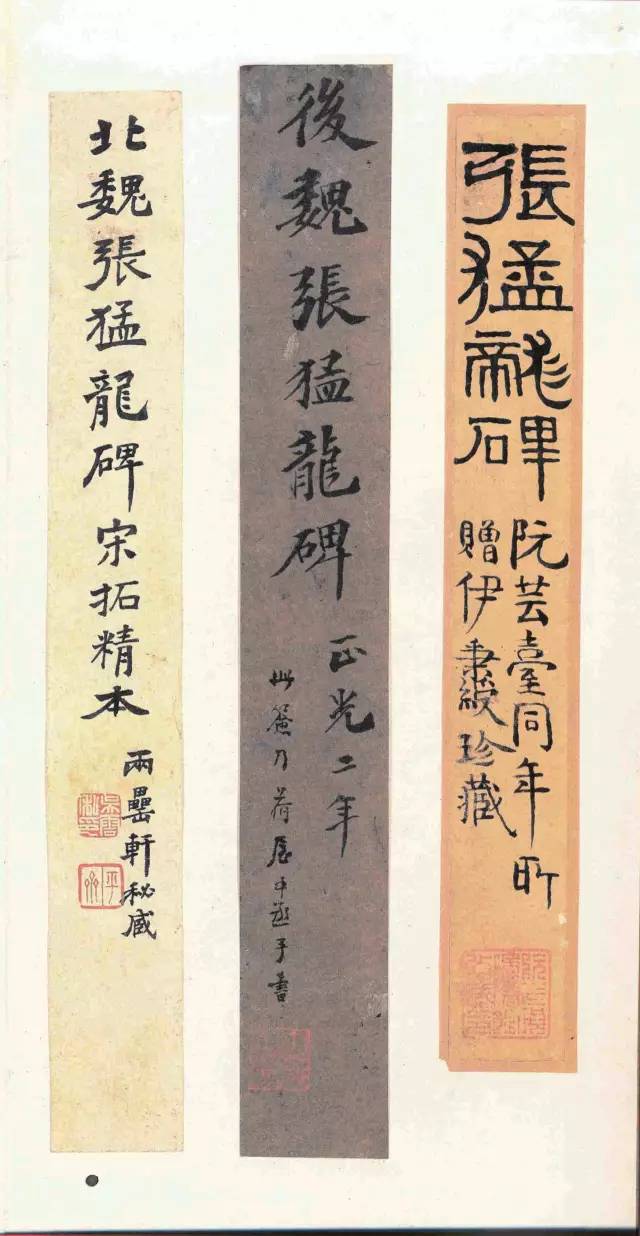 張猛龍碑
阮芸臺同年所
贈伊秉綬珍藏
後魏張猛龍碑
正光二年
此簽乃荷屋中丞手書
北魏張猛龍碑宋拓精本
兩罍軒秘藏